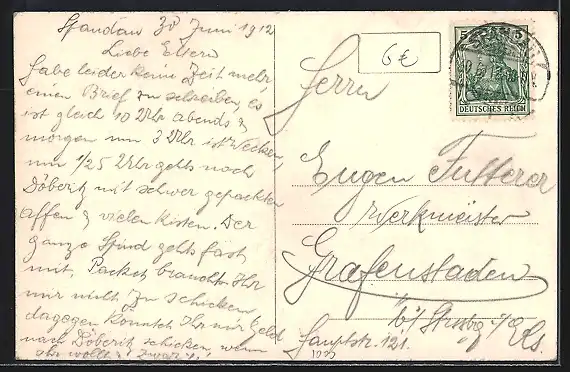 Spandau 30 Juni 1912
Liebe Eltern
Habe leider keine Zeit mehr,
einen Brief zu schreiben, es
ist gleich 10 Uhr abends &
morgen um 3 Uhr ist Wecken,
um 1/25 Uhr gehts nach
Döberitz mit schwer gepackten
Affen & vielen Kisten. Der
ganze Spind geht fast
mit. Packet braucht Ihr
mir nicht zu schicken
dagegen könntet Ihr mir Geld
nach Döberitz schicken wenn
Ihr wollt! zwar
6€
5 5
DEUTSCHES REICH
Herrn
Eugen Futterer
Werkmeister
Grafenstaden
b/ Strssbg i/ Els.
Hauptstr. 121.